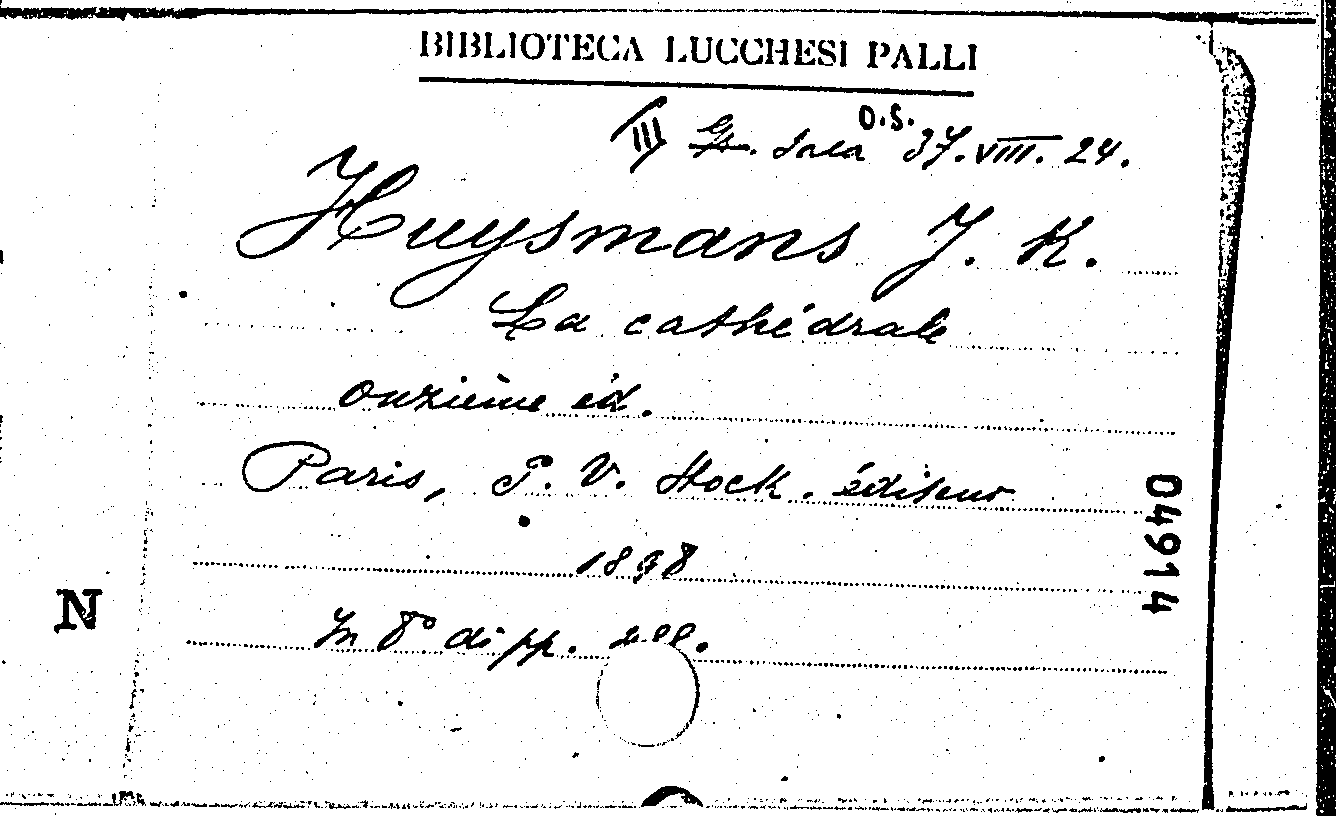 BIBLIOTECA LUCCHESI PALLI
O.S.
III Gr. Sala 37.VIII.24.
Huysmans J. K.
La cathédrale
onzième éd.
Paris, P. V. Stock. éditeur
1898
In 8° di pp.
04914
N